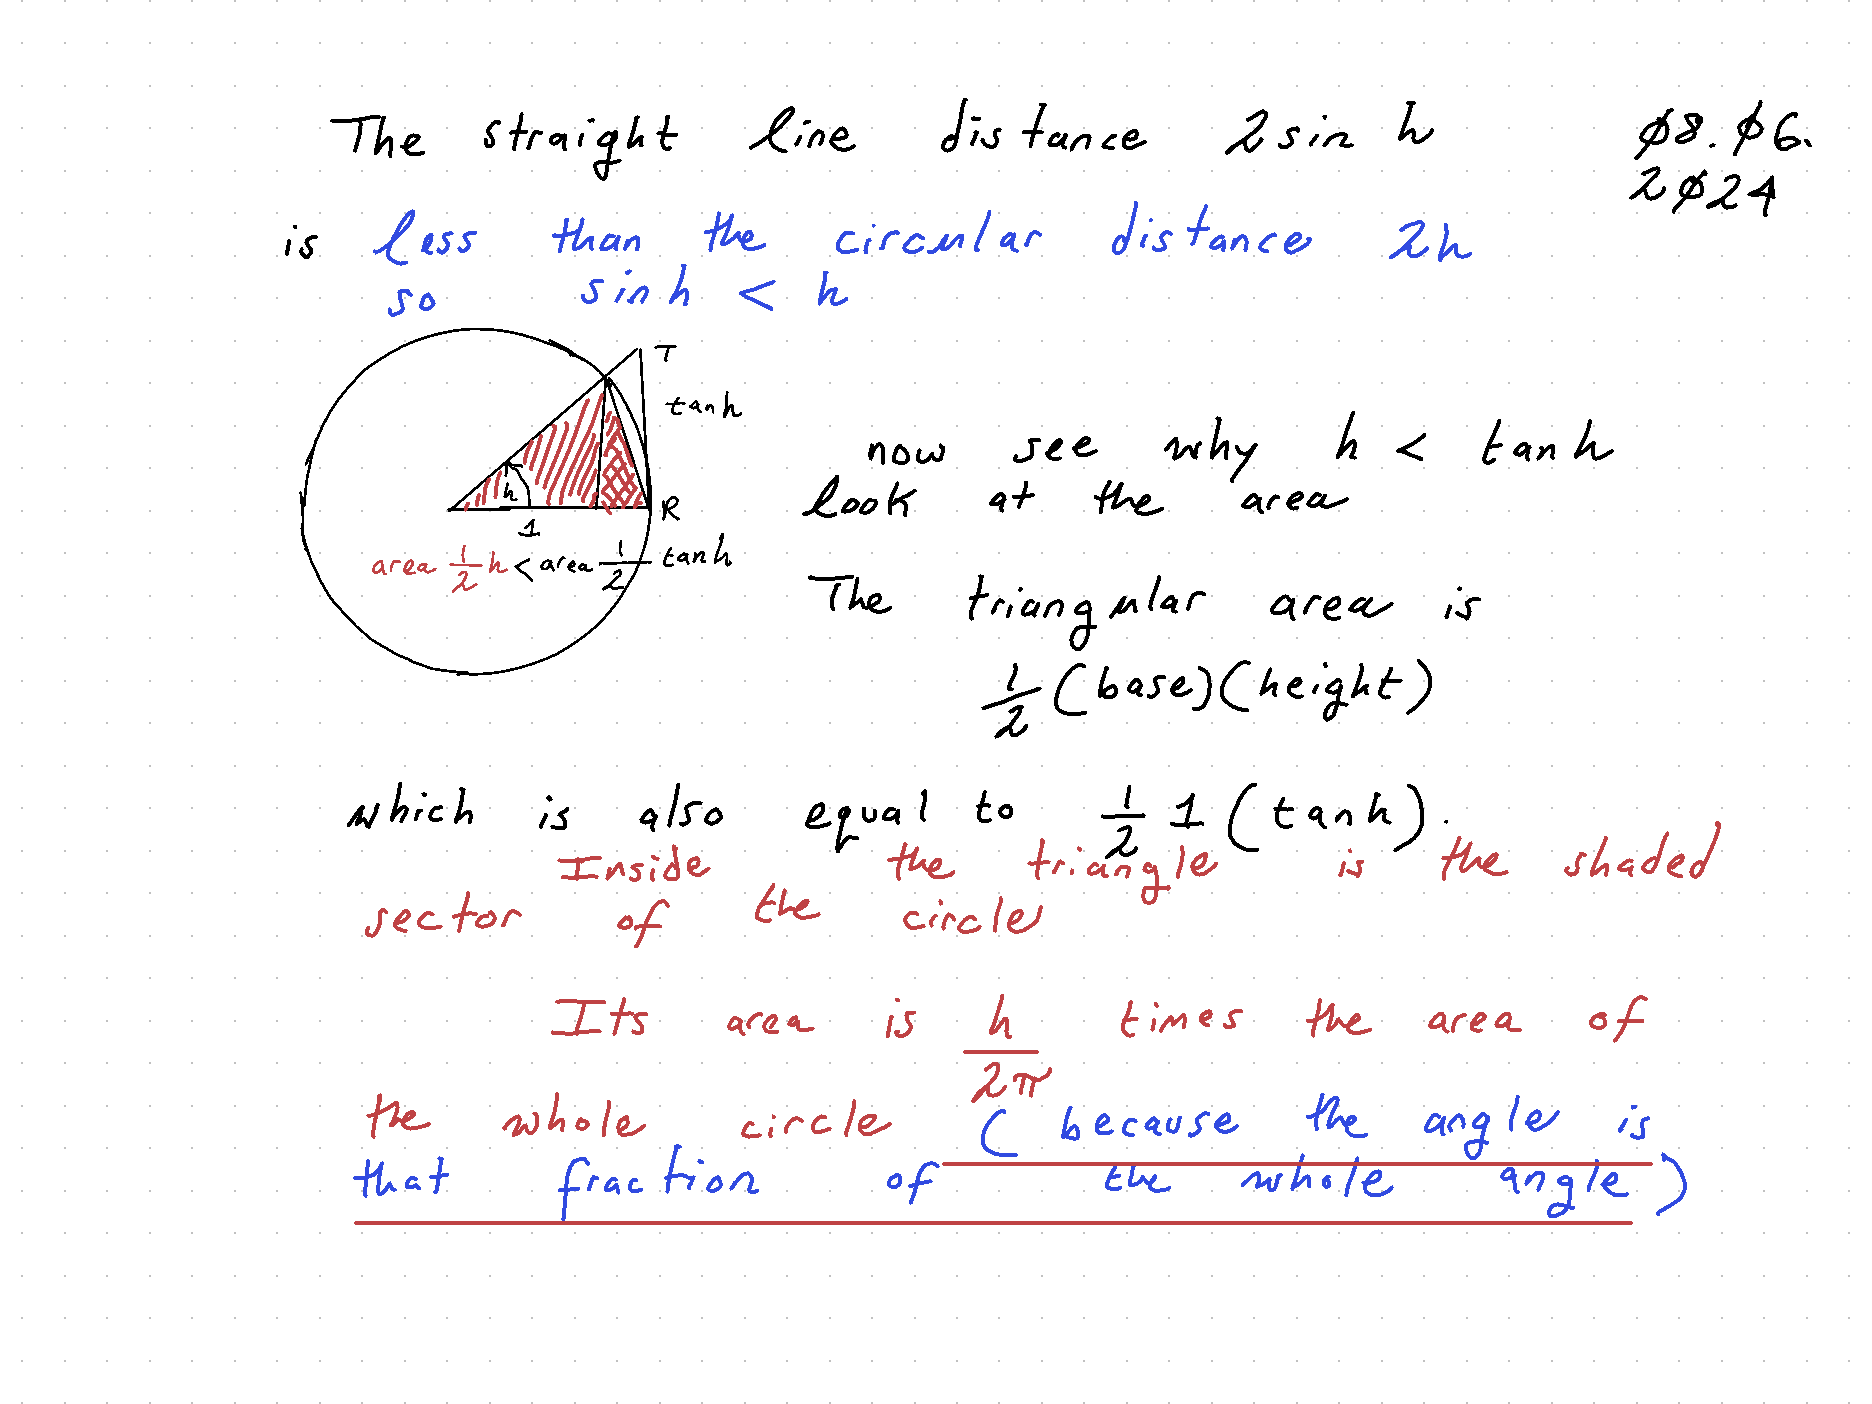 The straight line distance 2 sin h
ø8.ø6.
2ø24
is less than the circular distance 2h
so sin h < h
T
tan h
h
R
1
area 1/2 h < area 1/2 tan h
now see why h < tan h
look at the area
The triangular area is
1/2 (base)(height)
which is also equal to 1/2 1 (tan h).
Inside the triangle is the shaded
sector of the circle
Its area is h/2π times the area of
the whole circle (because the angle is
that fraction of the whole angle)